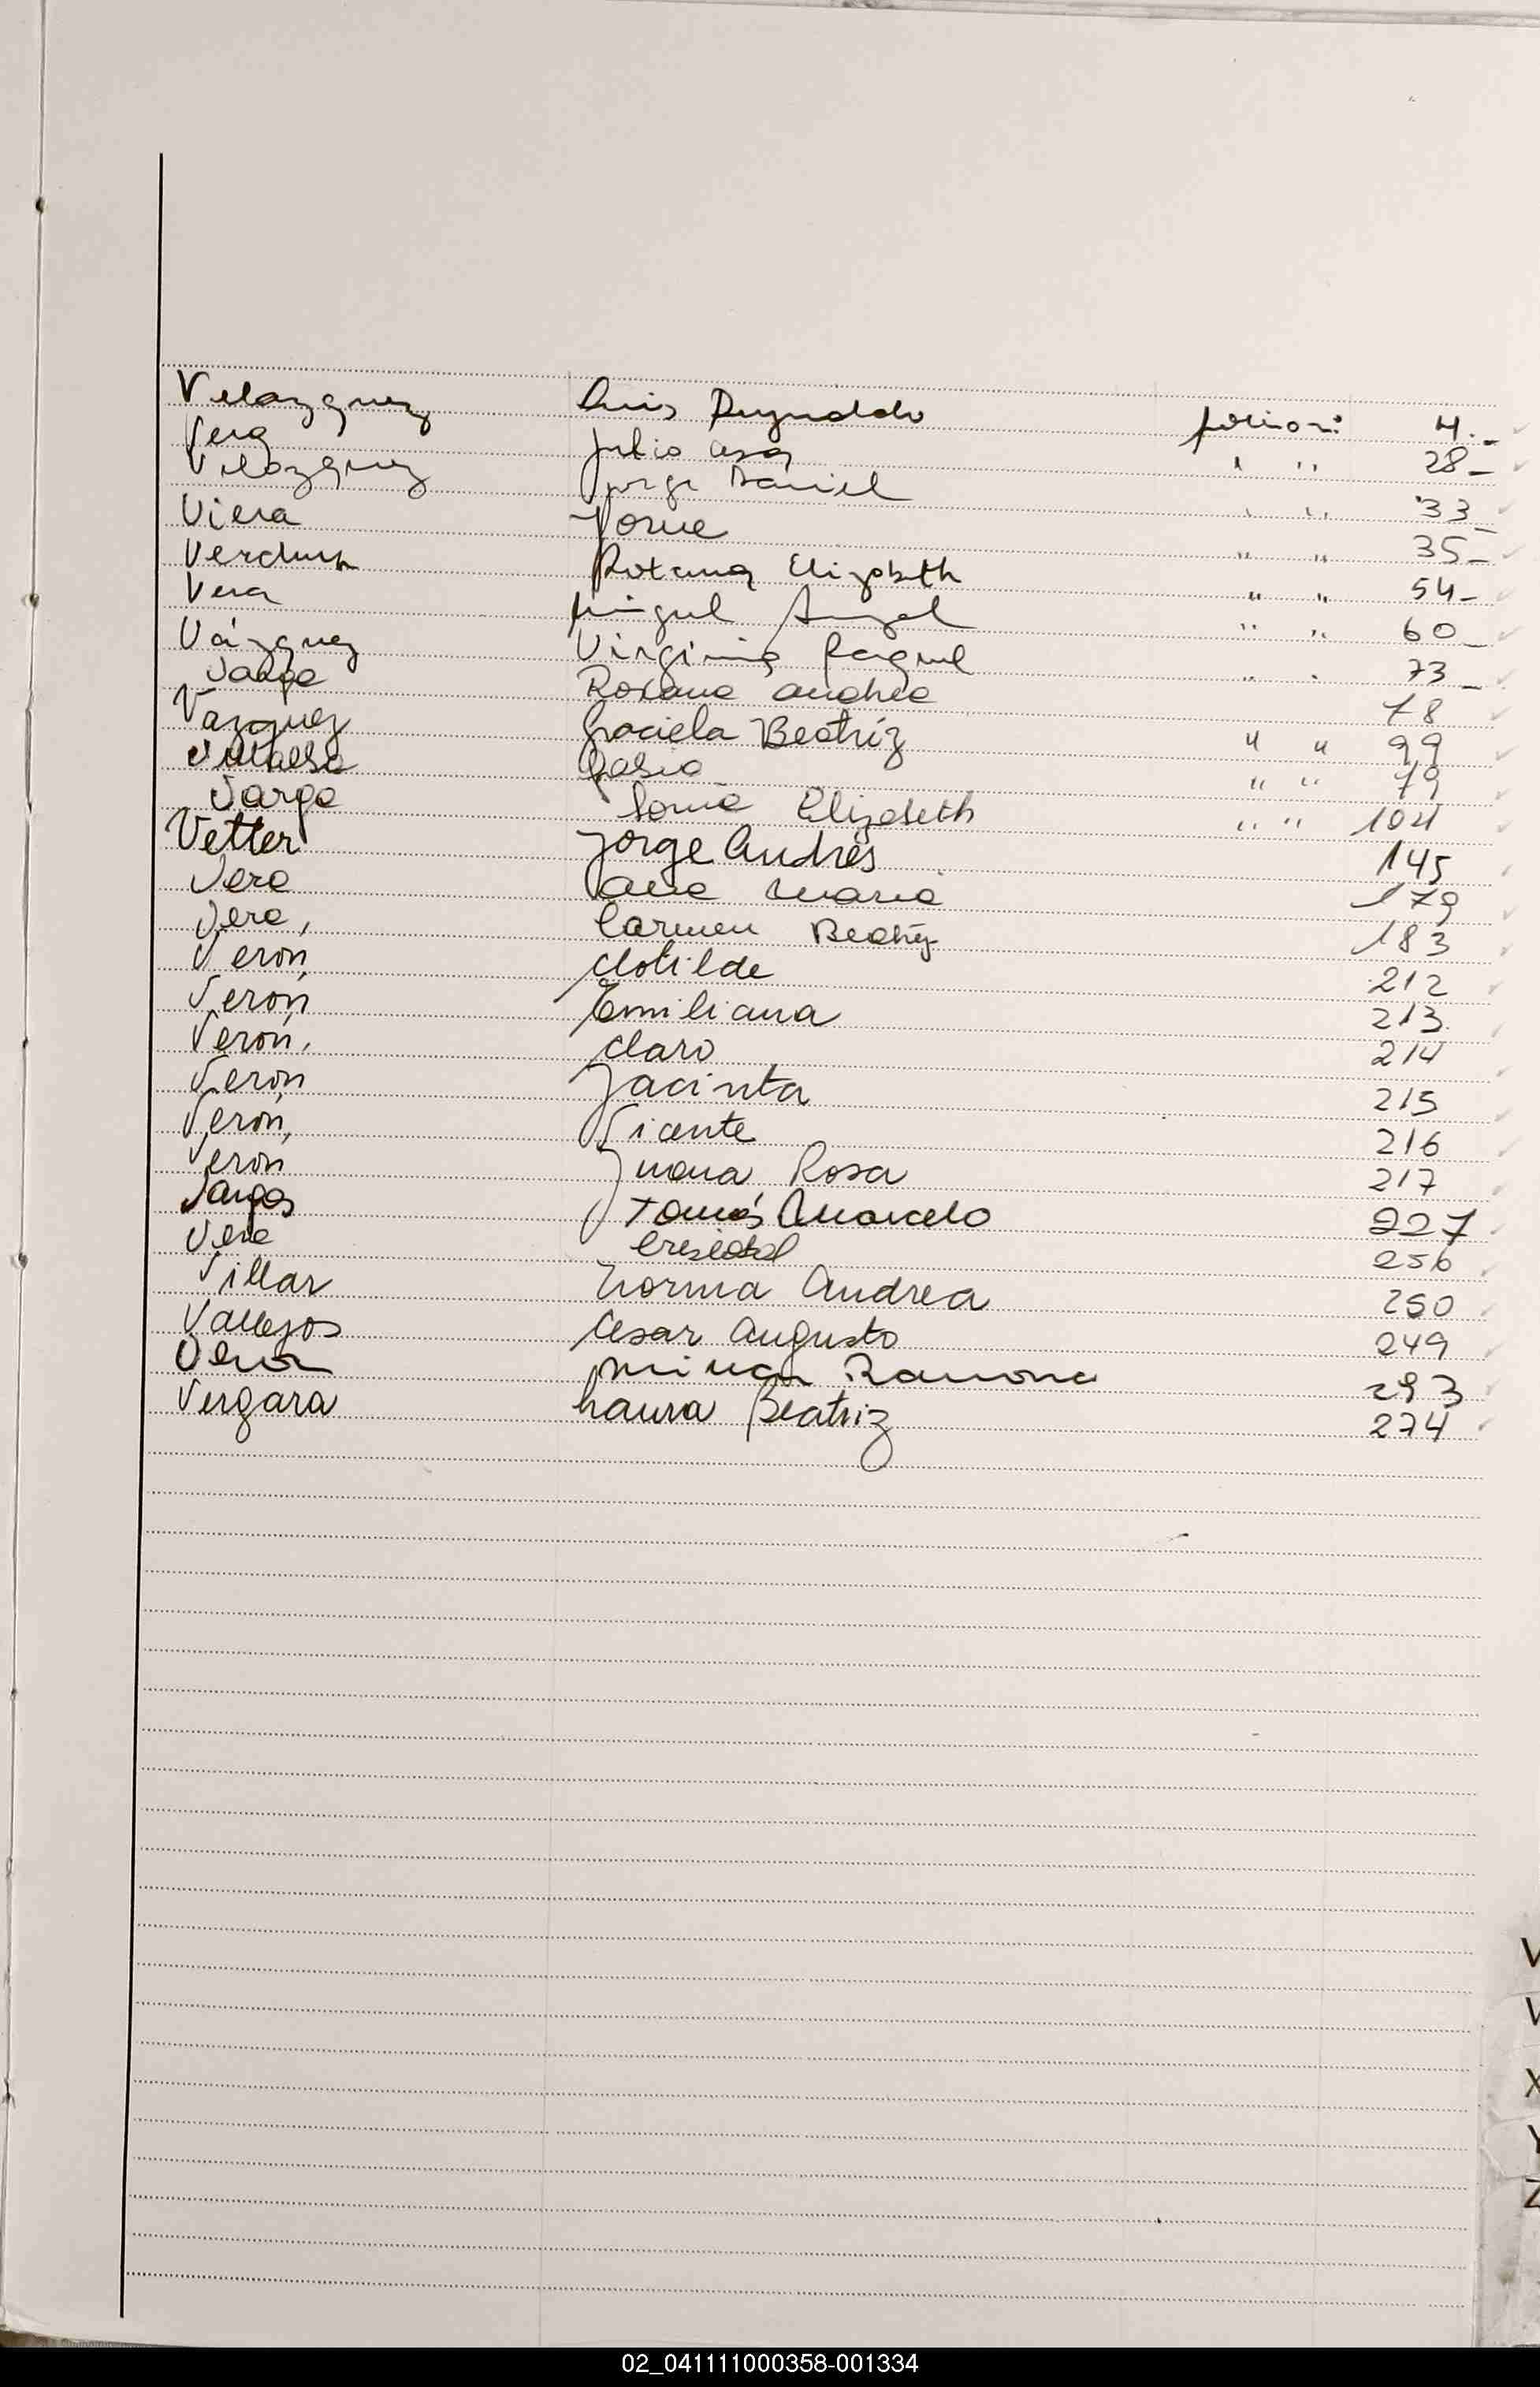 Velazquez Luis Reynaldo 4.-
Vera Julio Cesar " " 28-
Velazquez Jorge Daniel " " 33-
Viera Jorge " " 35-
Verdun Rosana Elizabeth " " 54-
Vera Miguel Angel " " 60-
Vázquez Virginia Raquel " " 73-
Varga Roxana Andrea 78
Vazquez Graciela Beatriz " " 99
" " 79
Varga Sonia Elizabeth " " 104
Vetter Jorge Andrés 145
Vera Ana Maria 179
Vera, Carmen Beatriz 183
Verón, Clotilde 212
Verón Emiliana 213
Verón, Claro 214
Verón Jacinta 215
Verón, Vicente 216
Verón Juana Rosa 217
Vargas Tomás Marcelo 227
Vera 256
Villar Norma Andrea 250
Vallejos Cesar Augusto 249
Veron Ramona 293
Vergara Laura Beatriz 274
V
X
Y
Z
02_041111000358-001334